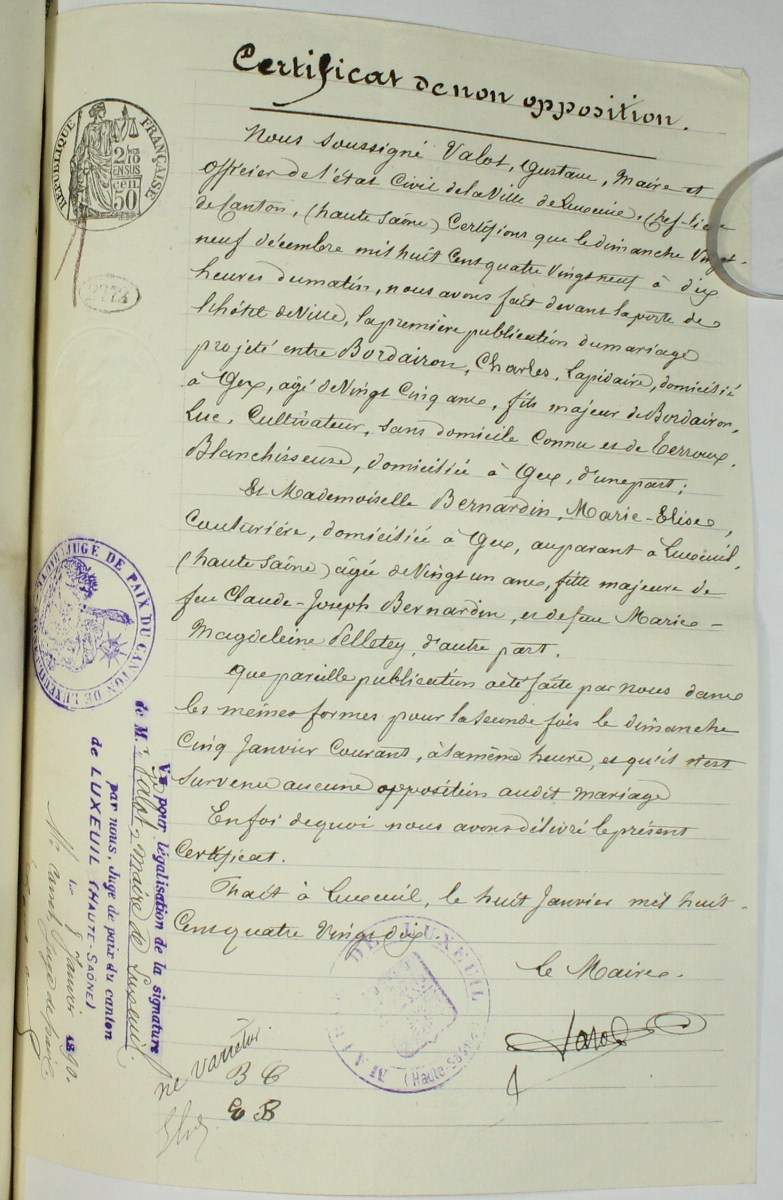 Certificat de non opposition.
Nous soussigné Valot, Gustave, Maire et
officier de l'état Civil de la Ville de Luxeuil, Chef-lieu
de Canton, (haute Saône) Certifions que le dimanche Vingt-
neuf décembre mil huit Cent quatre Vingt neuf à dix
heures du matin, nous avons fait devant la porte de
l'hôtel de Ville, la première publication du mariage
projeté entre Bordairon, Charles, Lapidaire, domicilié
à Gex, âgé de Vingt Cinq ans, fils majeur de Bordairon,
Luc, Cultivateur, sans domicile Connu et de Terroux,
Blanchisseuse, domiciliée à Gex, d'une part;
Et Mademoiselle Bernardin, Marie-Elise,
Couturière, domiciliée à Gex, auparant à Luxeuil,
(haute Saône) âgée de Vingt un ans, fille majeure de
feu Claude-Joseph Bernardin, et de feue Marie-
Magdeleine Pelletey, d'autre part.
Que pareille publication a été faite par nous dans
les mêmes formes pour la seconde fois le dimanche
Cinq Janvier Courant, à la même heure, et qu'il n'est
survenu aucune opposition audit mariage
En foi de quoi nous avons délivré le présent
Certificat.
Fait à Luxeuil, le huit Janvier mil huit-
Cent quatre Vingt dix.
Le Maire.
Valot
RÉPUBLIQUE FRANÇAISE
2/10 EN SUS
50 CEN.
JUGE DE PAIX DU CANTON DE LUXEUIL
Vu pour légalisation de la signature
de M. Valot, maire de Luxeuil
par nous, Juge de paix du canton
de LUXEUIL (HAUTE-SAÔNE)
le 8 Janvier 1890.
MAIRIE DE LUXEUIL
(Haute-Saône)
ne varietur.
B C
E B